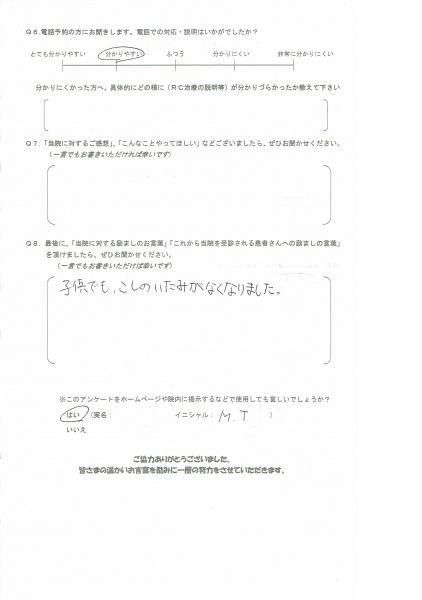 Q6.電話予約の方にお聞きします。電話での対応・説明はいかがでしたか？
とても分かりやすい　分かりやすい　ふつう　分かりにくい　非常に分かりにくい
分かりにくかった方へ。具体的にどの様に（RC治療の説明等）が分かりづらかったか教えて下さい
Q7.「当院に対するご感想」、「こんなことやってほしい」などございましたら、ぜひお聞かせください。
（一言でもお書きいただければ幸いです）
Q8. 最後に、「当院に対する励ましのお言葉」「これから当院を受診される患者さんへの励ましの言葉」
を頂けましたら、ぜひお聞かせください。
（一言でもお書きいただけば幸いです）
子供でも、こしのいたみがなくなりました。
※このアンケートをホームページや院内に掲示するなどで使用しても宜しいでしょうか？
はい （実名：　　イニシャル： M.T ）
いいえ
ご協力ありがとうございました。
皆さまの温かいお言葉を励みに一層の努力をさせていただきます。